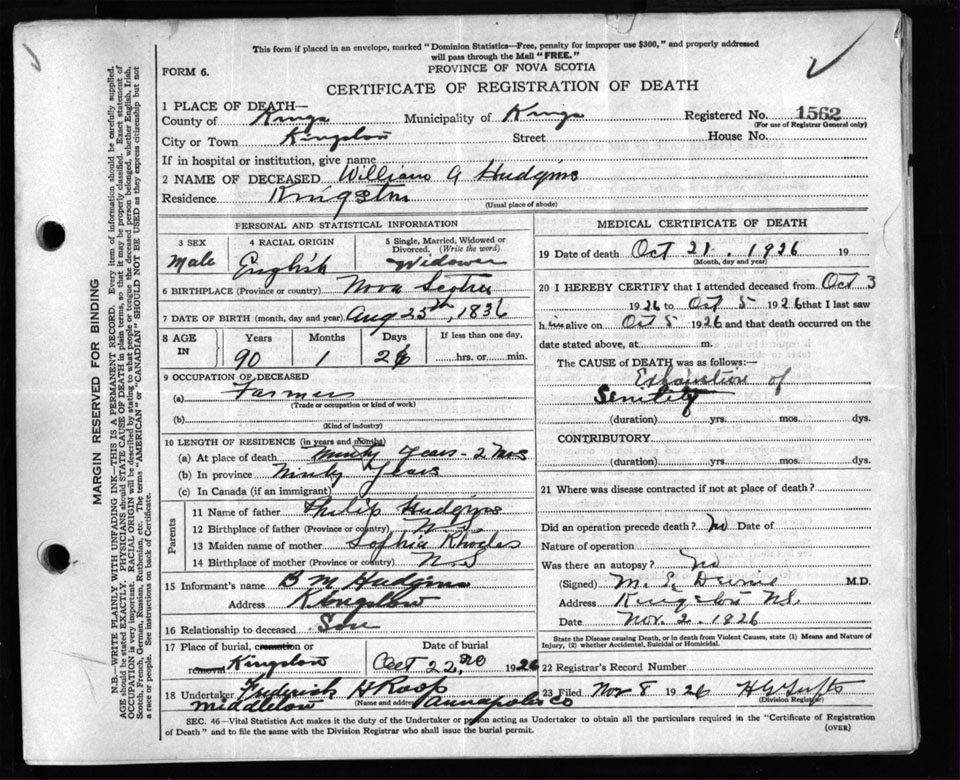 This form if placed in an envelope, marked "Dominion Statistics—Free, penalty for improper use $300," and properly addressed
will pass through the Mail "FREE."
FORM 6.
PROVINCE OF NOVA SCOTIA
CERTIFICATE OF REGISTRATION OF DEATH
1 PLACE OF DEATH—
County of Kings Municipality of Kings Registered No. 1562
(For use of Registrar General only)
City or Town Kingston Street House No.
If in hospital or institution, give name
2 NAME OF DECEASED William A Hudgins
Residence Kingston
(Usual place of abode)
PERSONAL AND STATISTICAL INFORMATION
3 SEX
Male
4 RACIAL ORIGIN
English
5 Single, Married, Widowed or
Divorced. (Write the word)
Widower
6 BIRTHPLACE (Province or country) Nova Scotia
7 DATE OF BIRTH (month, day and year) Aug 25th, 1836
8 AGE
IN
Years
90
Months
1
Days
26
If less than one day,
hrs. or min.
9 OCCUPATION OF DECEASED
(a) Farmer
(Trade or occupation or kind of work)
(b)
(Kind of industry)
10 LENGTH OF RESIDENCE (in years and months)
(a) At place of death Ninty Years - 2 Mos
(b) In province Ninty Years
(c) In Canada (if an immigrant)
Parents
11 Name of father Philip Hudgins
12 Birthplace of father (Province or country) N.S
13 Maiden name of mother Sophia Rhodes
14 Birthplace of mother (Province or country) N.S
15 Informant's name B M Hudgins
Address Kingston
16 Relationship to deceased Son
17 Place of burial, cremation or
removal Kingston
Date of burial
Oct 22nd, 1926
18 Undertaker Frederick H Roop
(Name and address)
Middleton Annapolis Co
MEDICAL CERTIFICATE OF DEATH
19 Date of death Oct 21. 1926 19
(Month, day and year)
20 I HEREBY CERTIFY that I attended deceased from Oct 3
1926 to Oct 5 1926 that I last saw
him alive on Oct 5 1926 and that death occurred on the
date stated above, at m.
The CAUSE of DEATH was as follows:—
Exhaustion of
Senility
(duration) yrs. mos. dys.
CONTRIBUTORY
(duration) yrs. mos. dys.
21 Where was disease contracted if not at place of death?
Did an operation precede death? No Date of
Nature of operation
Was there an autopsy? No
(Signed) M. E. M.D.
Address Kingston N.S.
Date Nov. 2. 1926
State the Disease causing Death, or in death from Violent Causes, state (1) Means and Nature of
Injury, (2) whether Accidental, Suicidal or Homicidal.
22 Registrar's Record Number
23 Filed Nov 8 1926 H G Tufts
(Division Registrar)
SEC. 46—Vital Statistics Act makes it the duty of the Undertaker or person acting as Undertaker to obtain all the particulars required in the "Certificate of Registration
of Death" and to file the same with the Division Registrar who shall issue the burial permit.
(OVER)
MARGIN RESERVED FOR BINDING
N.B.—WRITE PLAINLY WITH UNFADING INK—THIS IS A PERMANENT RECORD. Every item of information should be carefully supplied.
AGE should be stated EXACTLY. PHYSICIANS should STATE CAUSE OF DEATH in plain terms, so that it may be properly classified. Exact statement of
OCCUPATION is very important. RACIAL ORIGIN will be described by stating to what people or tongue the deceased person belonged, whether English, Irish,
Scotch, French, German, Russian, Ruthenian, etc. The terms "AMERICAN" or "CANADIAN" SHOULD NOT BE USED as they express citizenship but not
a race or people. See instructions on back of Certificate.